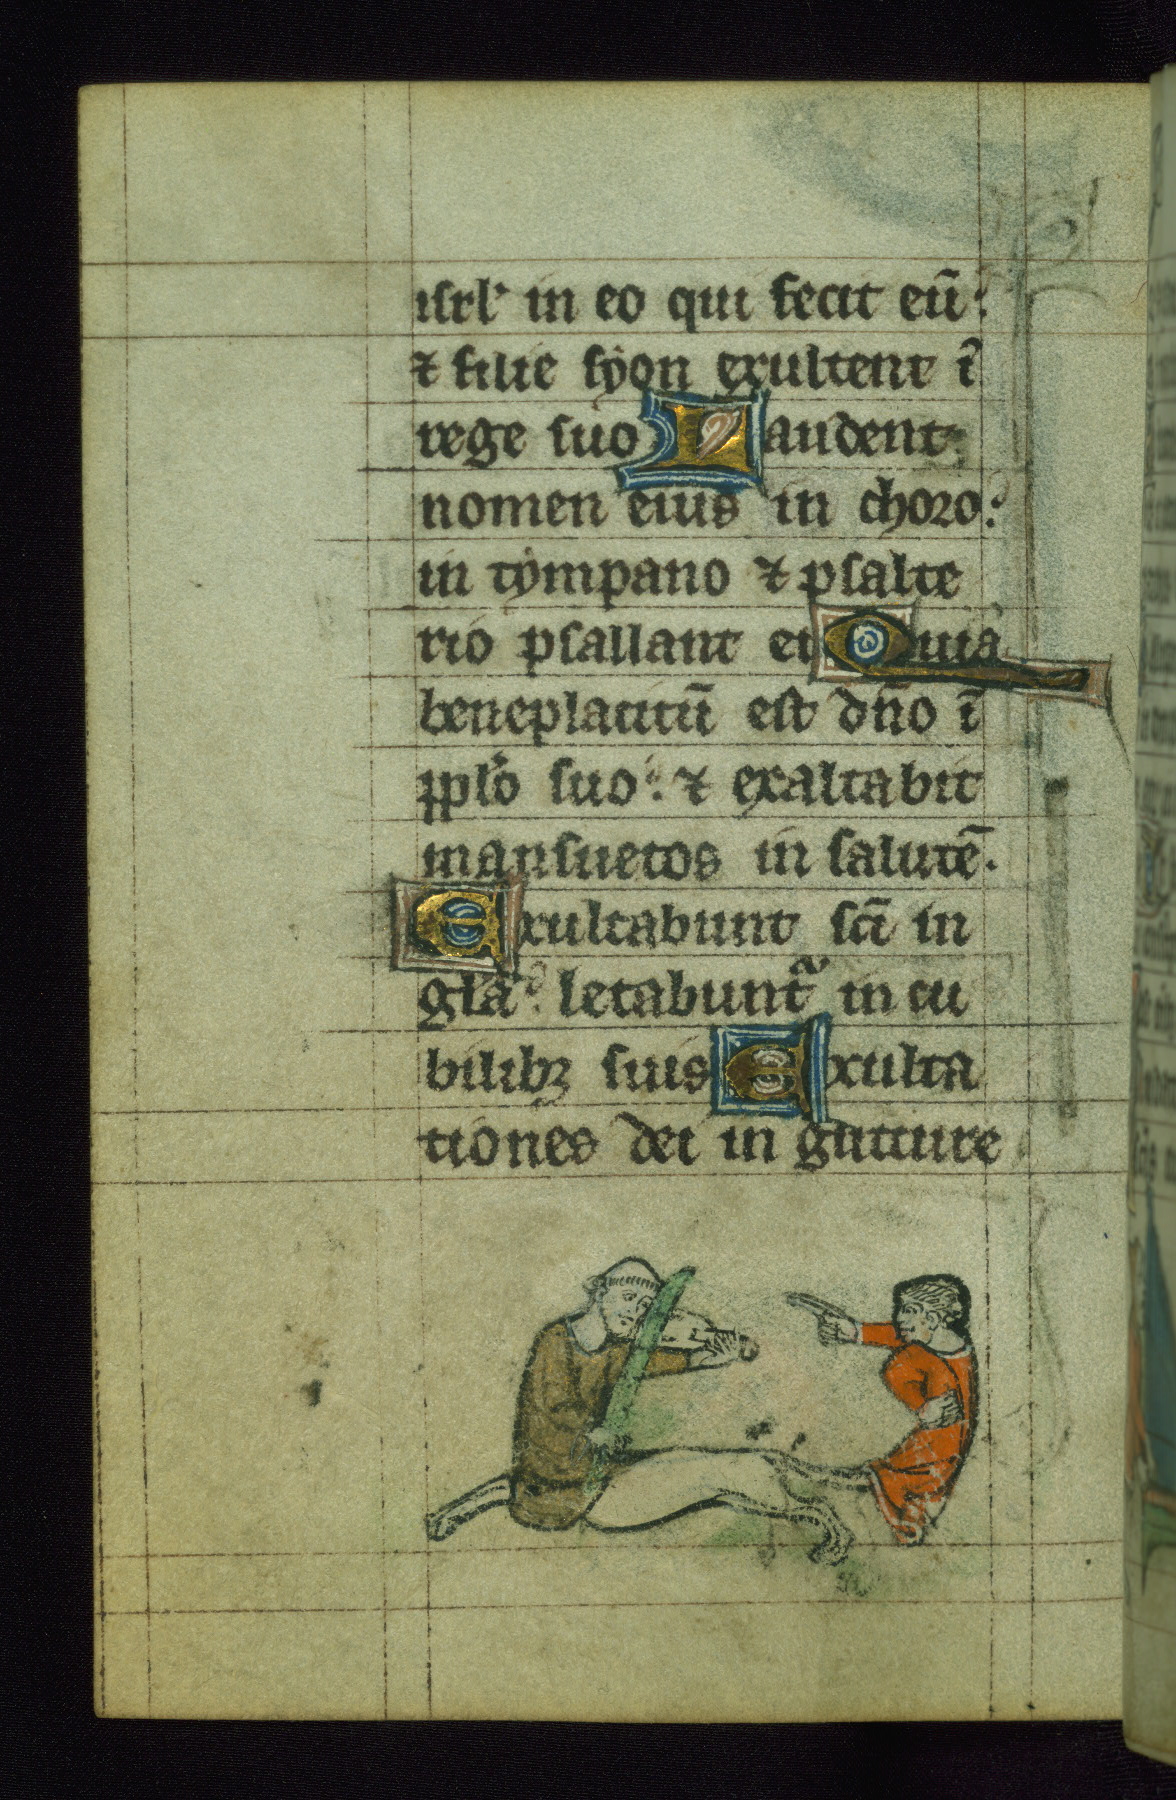 isrl' in eo qui fecit eū:
⁊ filie syon exultent ī
rege suo Laudent
nomen eius in choro:
in tympano ⁊ psalte
rio psallant ei Quia
beneplacitū est dn̄o ī
pplo suo: ⁊ exaltabit
mansuetos in salutē.
Exultabunt sc̄i in
gl̄a: letabunt᷑ in cu
bilibꝫ suis Exulta
tiones dei in gutture